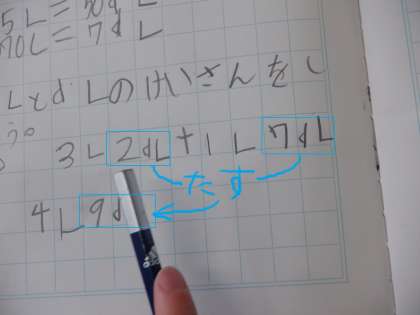 5L=50dL
70L=7dL
LとdLのけいさんをし
3L2dL+1L7dL
たす
4L9d